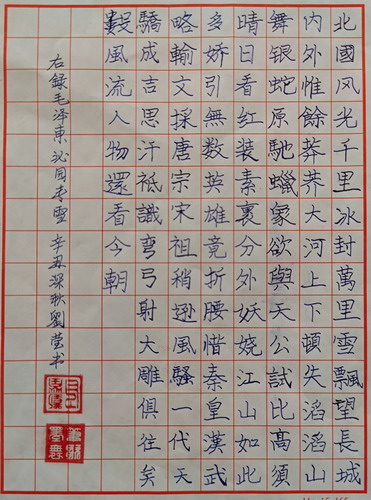 北國风光千里冰封萬里雪飄望長城
内外惟餘莽莽大河上下頓失滔滔山
舞银蛇原馳蠟象欲與天公試比高須
晴日看红装素裹分外妖娆江山如此
多娇引無数英雄竟折腰惜秦皇漢武
略輸文採唐宗宋祖稍逊風騷一代天
驕成吉思汗祗識弯弓射大雕俱往矣
數風流人物還看今朝
右録毛泽東沁园春雪 辛丑深秋劉莹书